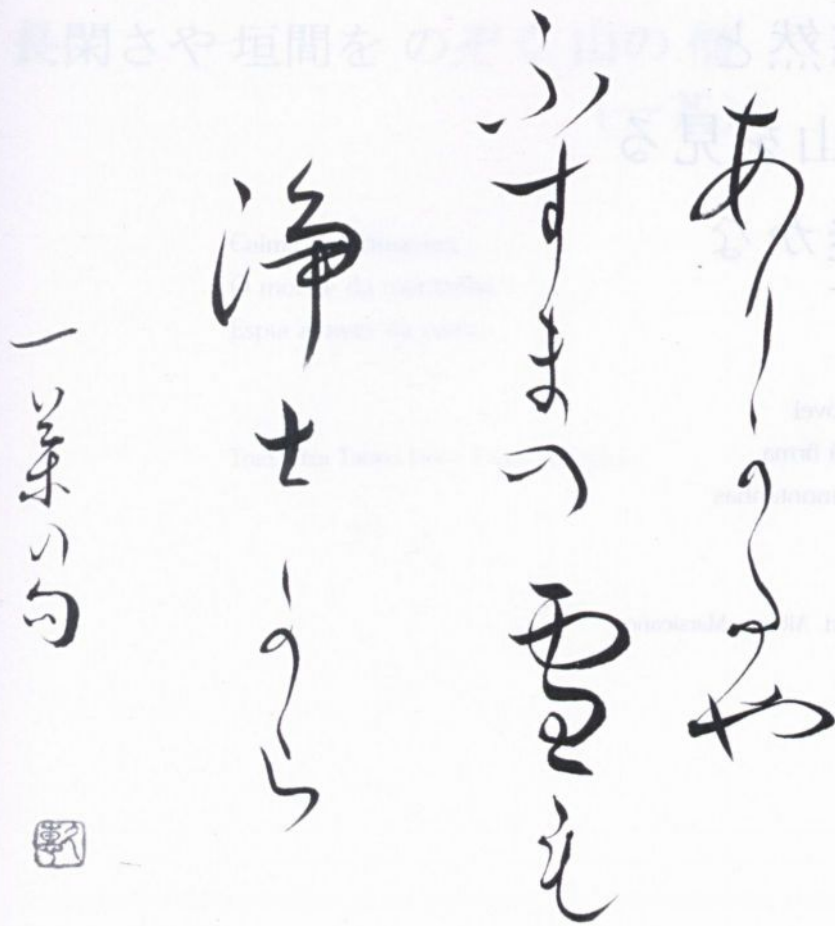 ありかたや
ふすまの雪も
浄土から
一茶の句